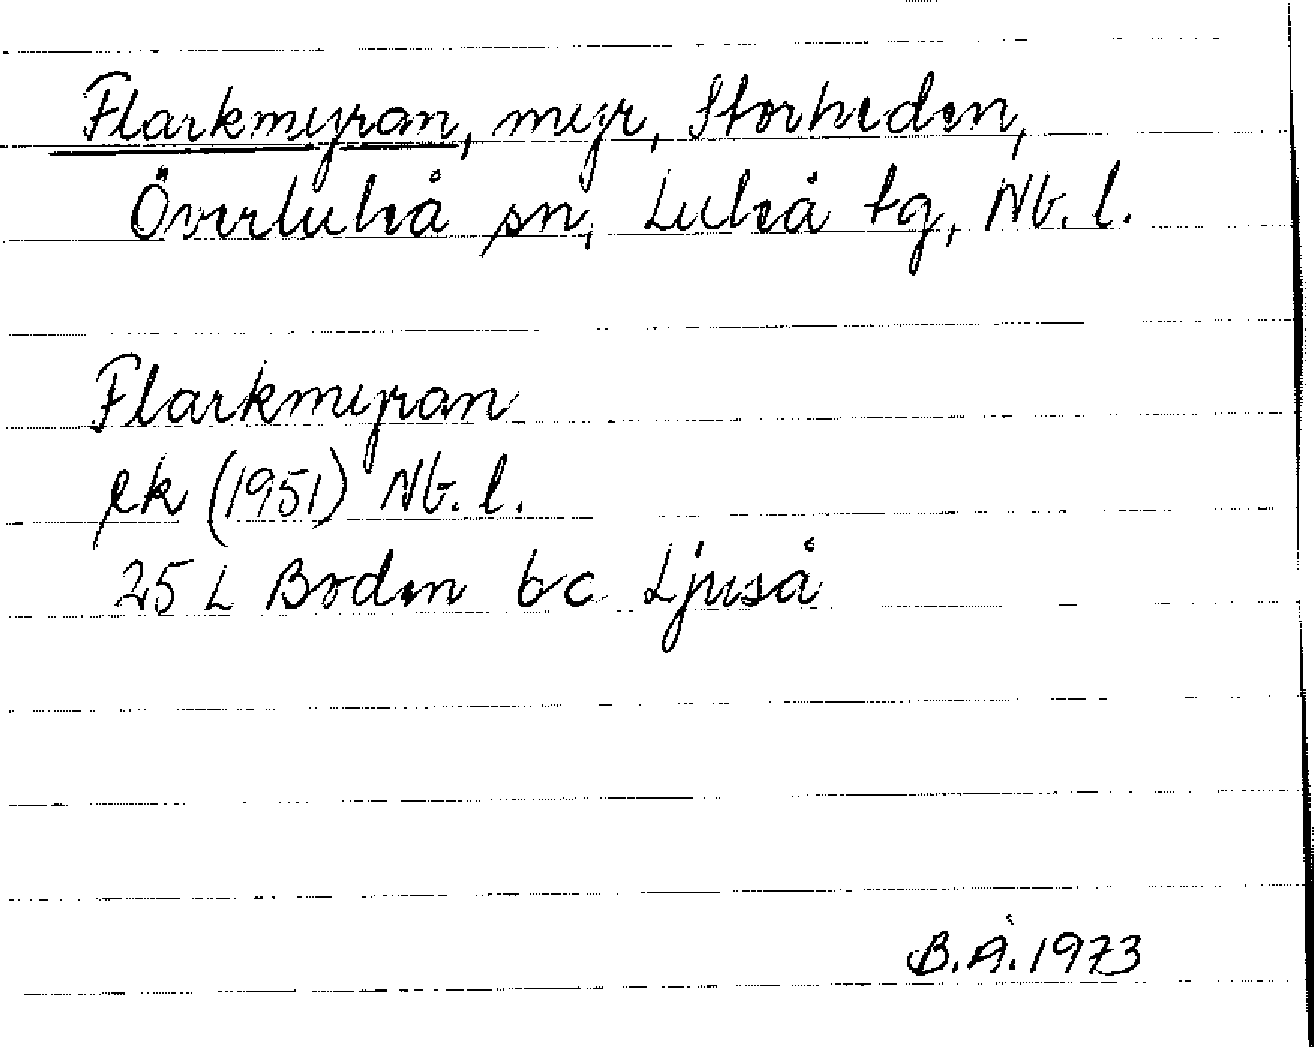 Flarkmyran, myr, Storheden,
Överluleå sn, Luleå tg, Nb. l.
Flarkmyran
ek (1951) Nb. l.
25 L Boden bc Ljuså
B.Å. 1973